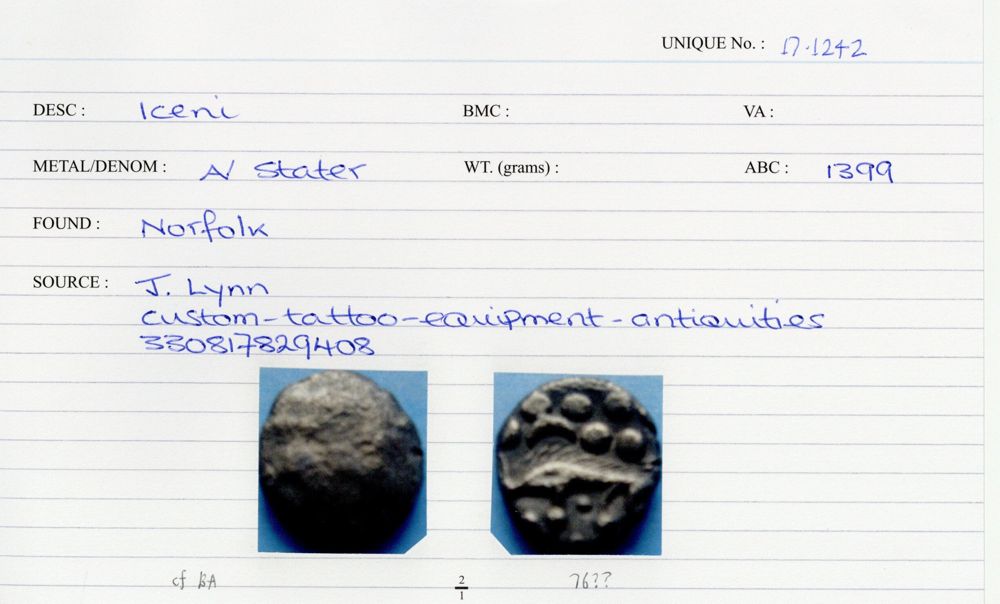 UNIQUE No. : 17.1242
DESC : Iceni BMC : VA :
METAL/DENOM : A/ Stater WT. (grams) : ABC : 1399
FOUND : Norfolk
SOURCE : J. Lynn
custom-tattoo-equipment-antiquities
330817829408
cf BA 2/1 76??